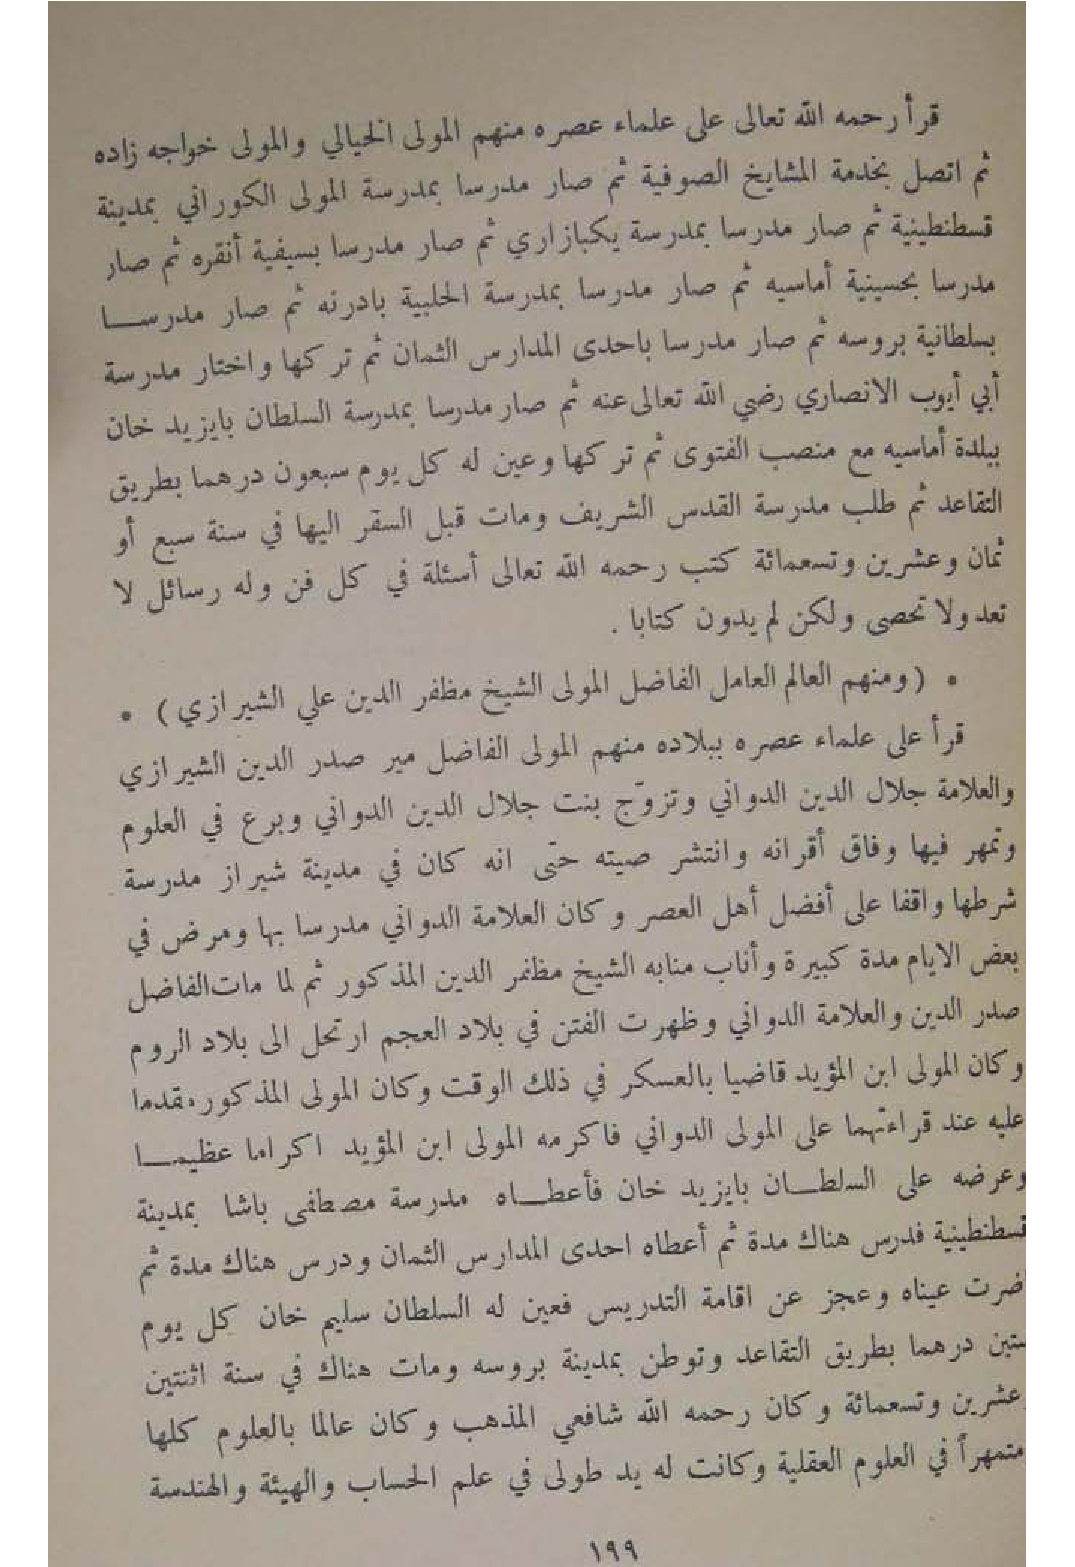 قرأ رحمه الله تعالى على علماء عصره منهم المولى الخيالي والمولى خواجه زاده
ثم اتصل بخدمة المشايخ الصوفية ثم صار مدرسا بمدرسة المولى الكوراني بمدينة
قسطنطينية ثم صار مدرسا بمدرسة يكبازاري ثم صار مدرسا بسيفية أنقره ثم صار
مدرسا بحسينية أماسيه ثم صار مدرسا بمدرسة الحلبية بادرنه ثم صار مدرســا
بسلطانية بروسه ثم صار مدرسا باحدى المدارس الثمان ثم تركها واختار مدرسة
أبي أيوب الانصاري رضي الله تعالى عنه ثم صار مدرسا بمدرسة السلطان بايزيد خان
ببلدة أماسيه مع منصب الفتوى ثم تركها وعين له كل يوم سبعون درهما بطريق
التقاعد ثم طلب مدرسة القدس الشريف ومات قبل السفر اليها في سنة سبع أو
ثمان وعشرين وتسعمائة كتب رحمه الله تعالى أسئلة في كل فن وله رسائل لا
تعد ولا تحصى ولكن لم يدون كتابا .
* ( ومنهم العالم العامل الفاضل المولى الشيخ مظفر الدين علي الشيرازي ) *
قرأ على علماء عصره ببلاده منهم المولى الفاضل مير صدر الدين الشيرازي
والعلامة جلال الدين الدواني وتزوّج بنت جلال الدين الدواني وبرع في العلوم
وتمهر فيها وفاق أقرانه وانتشر صيته حتى انه كان في مدينة شيراز مدرسة
شرطها واقفا على أفضل أهل العصر وكان العلامة الدواني مدرسا بها ومرض في
بعض الايام مدة كبيرة وأناب منابه الشيخ مظفر الدين المذكور ثم لما مات الفاضل
صدر الدين والعلامة الدواني وظهرت الفتن في بلاد العجم ارتحل الى بلاد الروم
وكان المولى ابن المؤيد قاضيا بالعسكر في ذلك الوقت وكان المولى المذكور مقدما
عليه عند قراءتهما على المولى الدواني فاكرمه المولى ابن المؤيد اكراما عظيمــا
وعرضه على السلطــان بايزيد خان فأعطــاه مدرسة مصطفى باشا بمدينة
قسطنطينية فدرس هناك مدة ثم أعطاه احدى المدارس الثمان ودرس هناك مدة ثم
أضرت عيناه وعجز عن اقامة التدريس فعين له السلطان سليم خان كل يوم
ستين درهما بطريق التقاعد وتوطن بمدينة بروسه ومات هناك في سنة اثنتين
وعشرين وتسعمائة وكان رحمه الله شافعي المذهب وكان عالما بالعلوم كلها
متمهراً في العلوم العقلية وكانت له يد طولى في علم الحساب والهيئة والهندسة
١٩٩